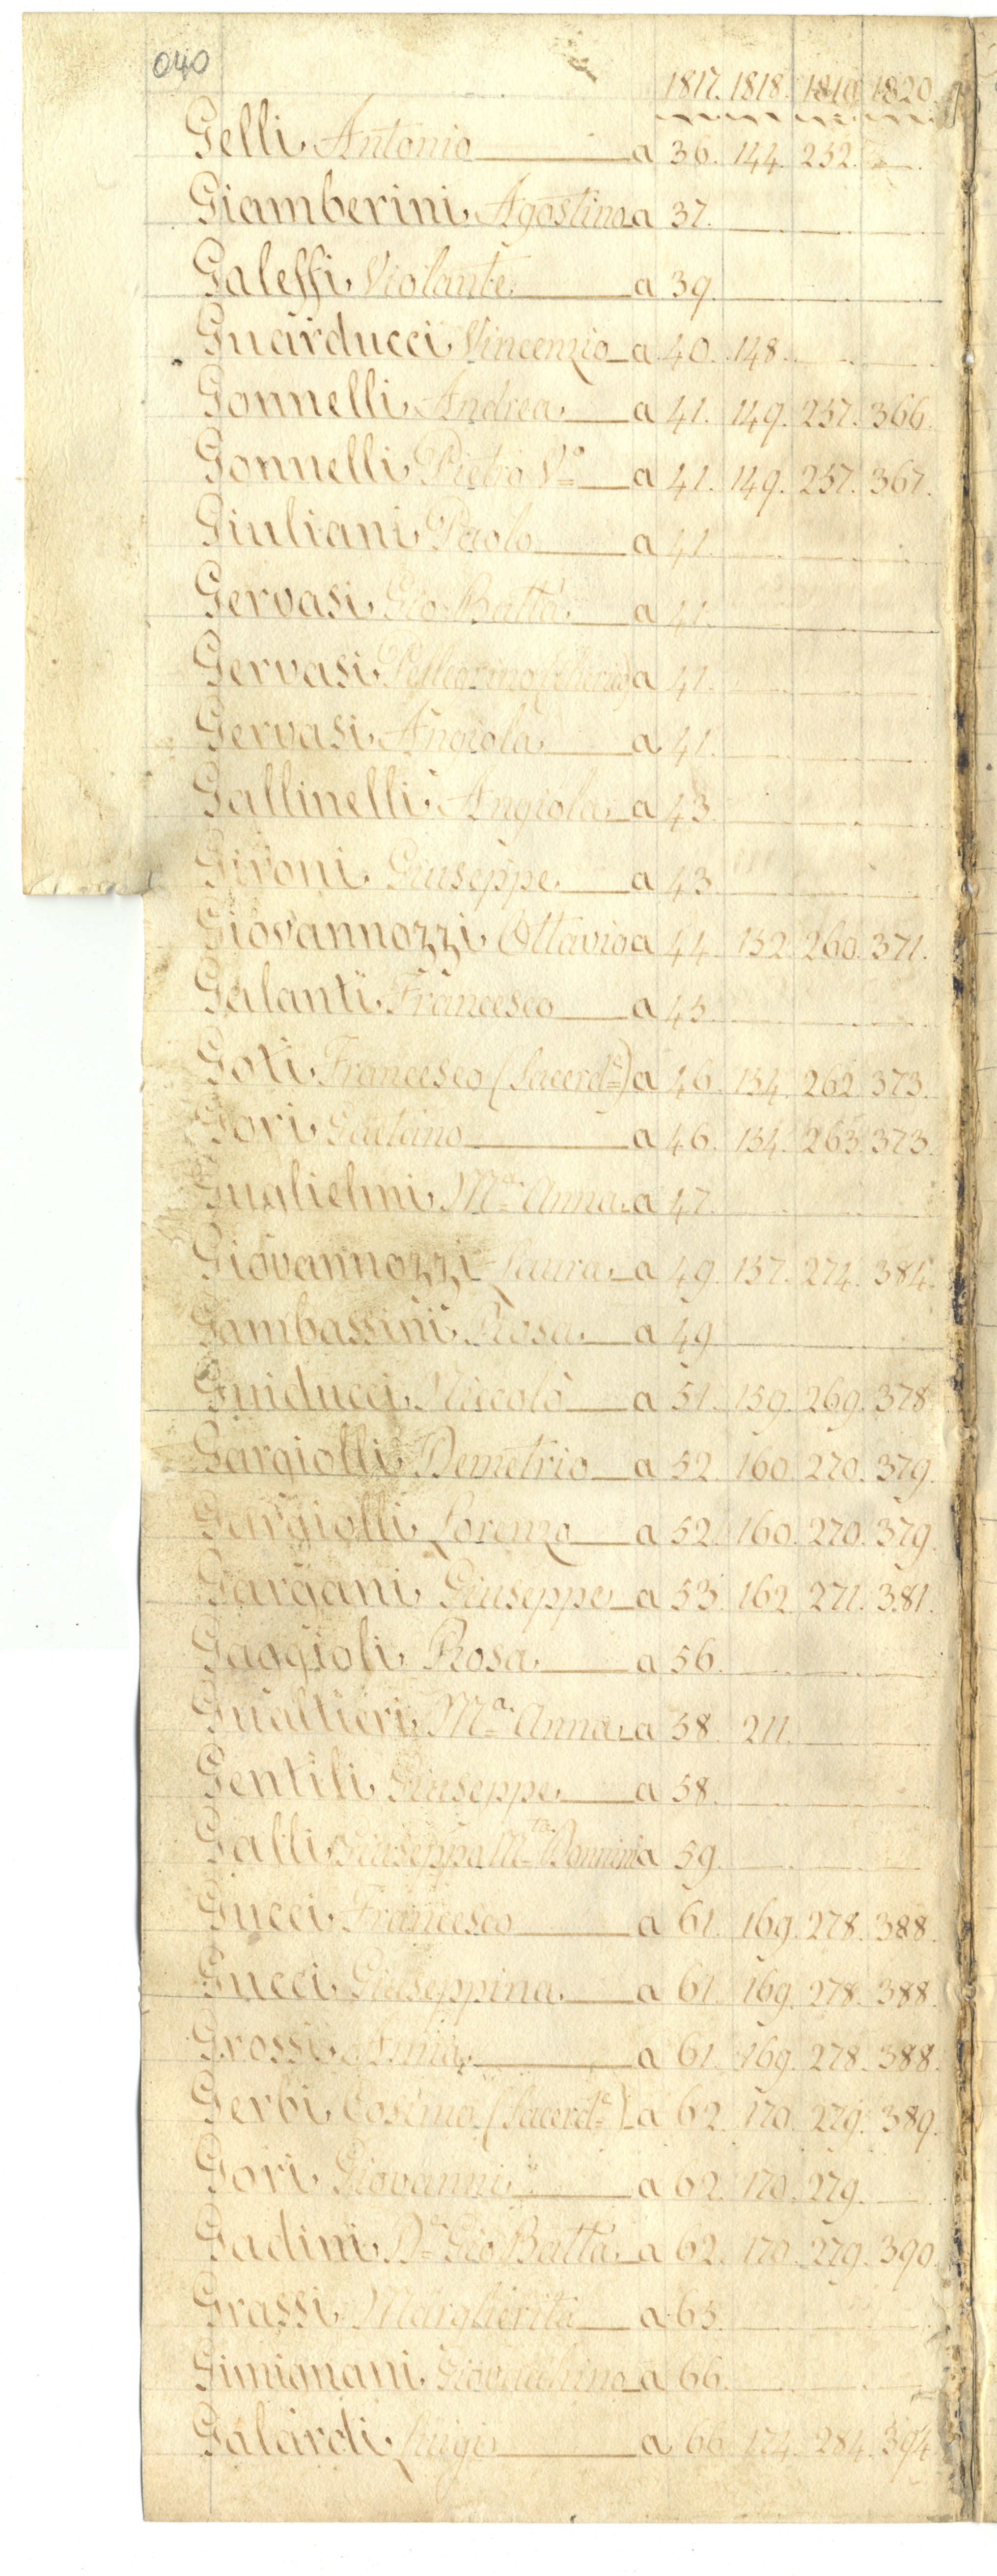 040
1817. 1818. 1819. 1820.
Gelli Antonio a 36. 144. 252.
Giamberini Agostino a 37.
Galeffi Violante a 39.
Guarducci Vincenzio a 40. 148.
Gonnelli Andrea a 41. 149. 257. 366.
Gonnelli Pietro Vo a 41. 149. 257. 367.
Giuliani Paolo a 41.
Gervasi Gio Batta a 41.
Gervasi Pellegrino a 41.
Gervasi Angiola a 41.
Gallinelli Angiola a 43.
Gironi Giuseppe a 43.
Giovannozzi Ottavio a 44. 152. 260. 371.
Galanti Francesco a 45.
Goti Francesco (Sacerde) a 46. 154. 262. 373.
Gori Gaetano a 46. 154. 263. 373.
Guglielmi Ma Anna a 47.
Giovannozzi Laura a 49. 157. 274. 384.
Gambassini Rosa a 49.
Guiducci Niccolò a 51. 159. 269. 378.
Gargiolli Demetrio a 52. 160. 270. 379.
Gargiolli Lorenzo a 52. 160. 270. 379.
Gargani Giuseppe a 53. 162. 271. 381.
Gaggioli Rosa a 56.
Gualtieri Ma Anna a 58. 211.
Gentili Giuseppe a 58.
Galli Giuseppa Mta Donnini a 59.
Gucci Francesco a 61. 169. 278. 388.
Gucci Giuseppina a 61. 169. 278. 388.
Grossi Anna a 61. 169. 278. 388.
Gerbi Cosimo (Sacerde) a 62. 170. 279. 389.
Gori Giovanni a 62. 170. 279.
Gadini Dr Gio Batta a 62. 170. 279. 390.
Grassi Margherita a 65.
Gimignani Giovacchino a 66.
Galardi Luigi a 66. 174. 284. 394.